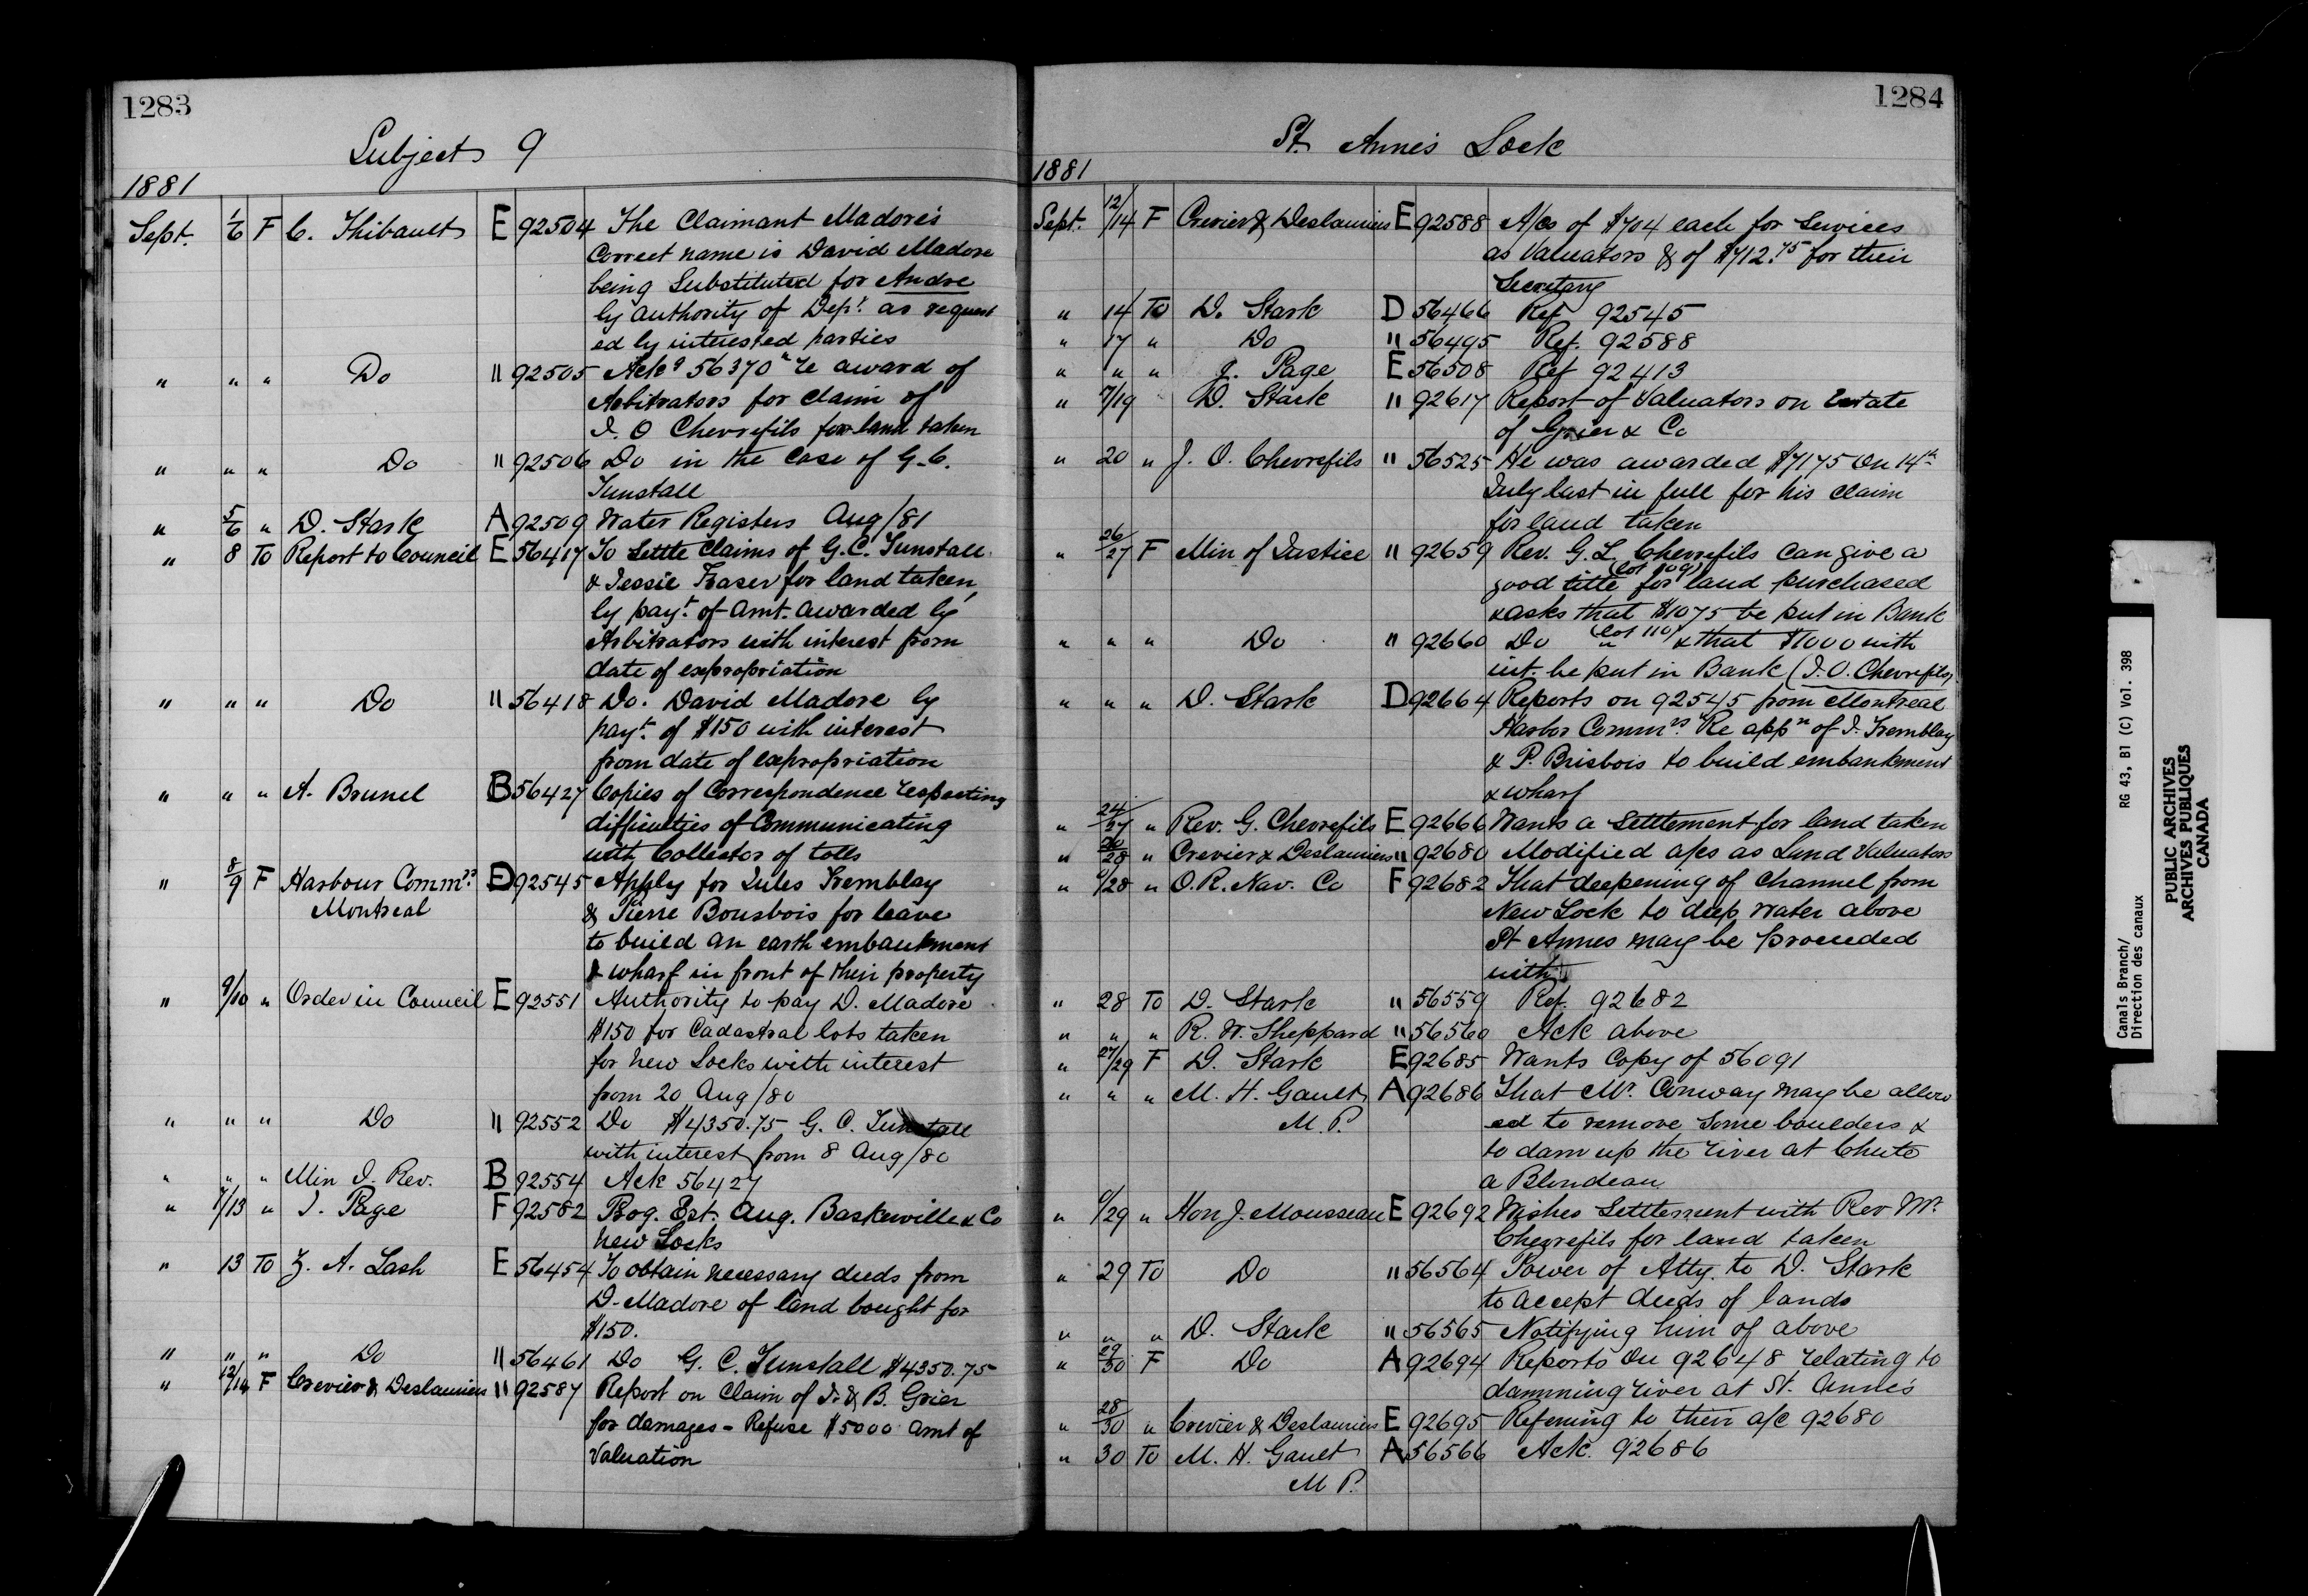 1283
Subject 9
1881
Sept. 1/6 F C. Thibault E 92504 The Claimant Madore's
Correct name is David Madore
being Substituted for Andre
by authority of Dept. as request
ed by interested parties
" " " Do " 92505 Ackg 56370 re award of
Arbitrators for claim of
J. O Chevrefils for land taken
" " " Do " 92506 Do in the case of G. C.
Tunstall
" 5/6 " D. Stark A 92509 Water Registers Aug/81
" 8 To Report to Council E 56417 To Settle Claims of G. C. Tunstall
& Jessie Fraser for land taken,
by payt. of amt. awarded by
Arbitrators with interest from
date of expropriation
" " " Do " 56418 Do. David Madore by
payt. of $150 with interest
from date of expropriation
" " " A. Brunel B 56427 Copies of Correspondence respecting
difficulties of Communicating
with Collector of tolls
" 8/9 F Harbour Commrs. D 92545 Apply for Jules Tremblay
Montreal & Pierre Bousbois for leave
to build an earth embankment
& wharf in front of their property
" 9/10 " Order in Council E 92551 Authority to pay D. Madore
$150 for Cadastral lots taken
for new Locks with interest
from 20 Aug/80
" " " Do " 92552 Do $4350.75 G. C. Tunstall
with interest from 8 Aug/80
" " " Min I. Rev. B 92554 Ack 56427
" 1/13 " J. Page F 92582 Prog. Est. Aug. Baskerville & Co
new Locks
" 13 To Z. A. Lash E 56454 To obtain necessary deeds from
D. Madore of land bought for
$150.
" " " Do " 56461 Do G. C. Tunstall $4350.75
" 12/14 F Crevier & Deslauriers " 92587 Report on Claim of J. & B. Grier
for damages - Refuse $5000 amt of
Valuation
1284
St. Anne's Lock
1881
Sept. 12/14 F Crevier & Deslauriers E 92588 A/cs of $704 each for Services
as Valuators & of $712.75 for their
Secretary
" 14 To D. Stark D 56466 Ref 92545
" 17 " Do " 56495 Ref. 92588
" " " J. Page E 56508 Ref 92413
" 17/19 D. Stark " 92617 Report of Valuators on Estate
of Grier & Co
" 20 " J. O. Chevrefils " 56525 He was awarded $7175 on 14th
July last in full for his claim
for land taken
" 26/27 F Min of Justice " 92659 Rev. G. L. Chevrefils can give a
good title (lot 109) for land purchased
& asks that $1075 be put in Bank
" " " Do " 92660 Do (lot 110) " & that $1000 with
int. be put in Bank (J. O. Chevrefils)
" " " D. Stark D 92664 Reports on 92545 from Montreal
Harbor Commrs. Re appn of J. Tremblay
& P. Brisbois to build embankment
& wharf
" 24/27 " Rev. G. Chevrefils E 92666 Wants a settlement for land taken
" 26/28 " Crevier & Deslauriers " 92680 Modified a/cs as Land Valuators
" /28 " O. R. Nav. Co F 92682 That deepening of channel from
New Lock to deep water above
St Annes may be proceeded
with
" 28 To D. Stark " 56559 Ref. 92682
" " " R. W. Sheppard " 56560 Ack above
" 27/29 F D. Stark E 92685 Wants Copy of 56091
" " " M. H. Gault A 92686 That Mr. Conway may be allow
M. P. ed to remove some boulders &
to dam up the river at Chute
a Blondeau
" /29 " Hon J. Mousseau E 92692 Wishes Settlement with Rev Mr.
Chevrefils for land taken
" 29 To Do " 56564 Power of Atty. to D. Stark
to accept deeds of lands
" " " D. Stark " 56565 Notifying him of above
" 29/30 F Do A 92694 Reports on 92648 relating to
damming river at St. Anne's
" 28/30 " Crevier & Deslauriers E 92695 Referring to their a/c 92680
" 30 To M. H. Gault A 56566 Ack. 92686
M P.
Canals Branch/ RG 43, B1 (C) Vol. 398
Direction des canaux
PUBLIC ARCHIVES
ARCHIVES PUBLIQUES
CANADA